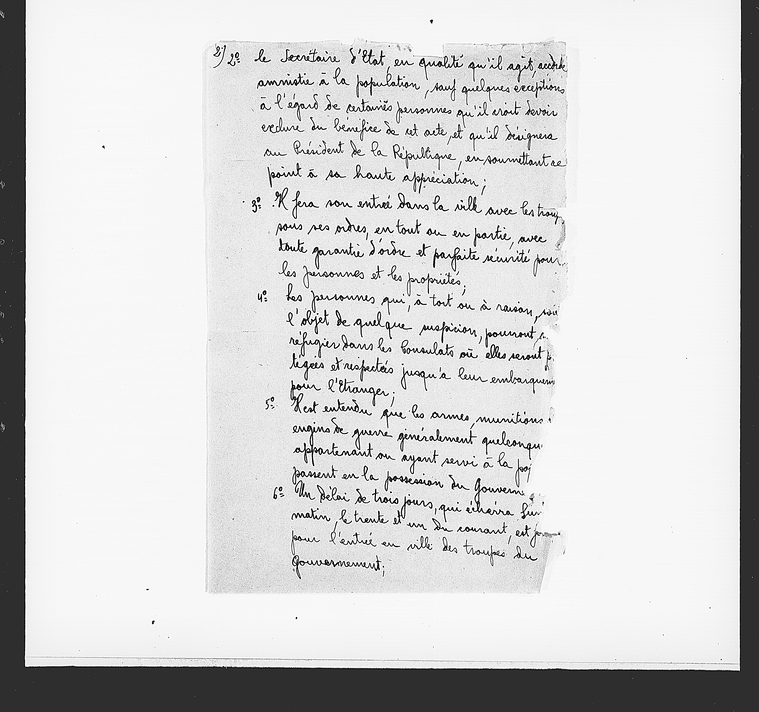 2) 2º le Secrétaire d'Etat, en qualité qu'il agit, accorde
amnistie à la population, sauf quelques exceptions
à l'égard de certaines personnes qu'il croit devoir
exclure du bénéfice de cet acte, et qu'il désignera
au Président de la République, en soumettant ce
point à sa haute appréciation;
3º Il fera son entrée dans la ville avec les troup
sous ses ordres, en tout ou en partie, avec
toute garantie d'ordre et parfaite sécurité pour
les personnes et les propriétés;
4º Les personnes qui, à tort ou à raison, soi
l'objet de quelque suspicion, pourront
réfugier dans les Consulats où elles seront p
tégées et respectées jusqu'à leur embarquem
pour l'Etranger;
5º Il est entendu que les armes, munitions
engins de guerre généralement quelconqu
appartenant ou ayant servi à la po
passent en la possession du Gouvern
6º Un délai de trois jours, qui écherra Lun
matin, le trente et un du courant, est
pour l'entrée en ville des troupes du
Gouvernement;